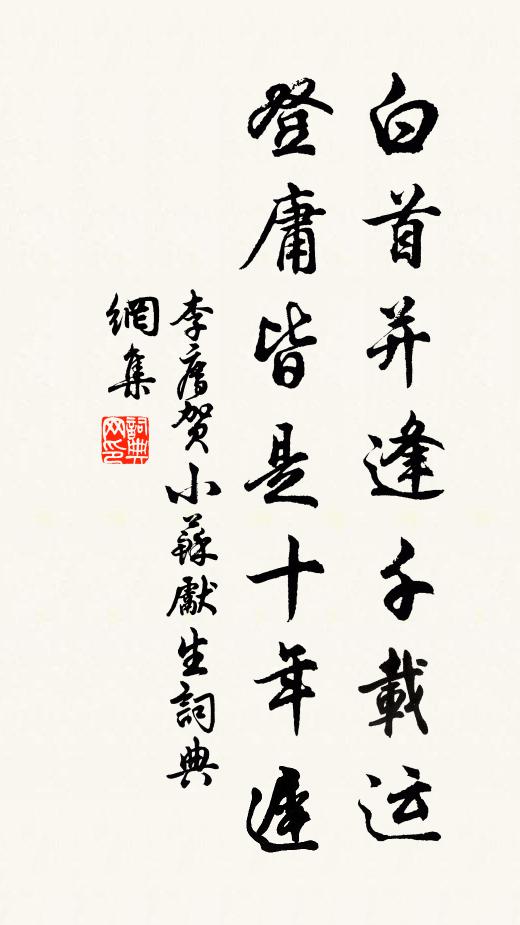 白首并逢千載运
登庸皆是十年遲
李廌贺小蘇獻生詞典
網集
詞典网印